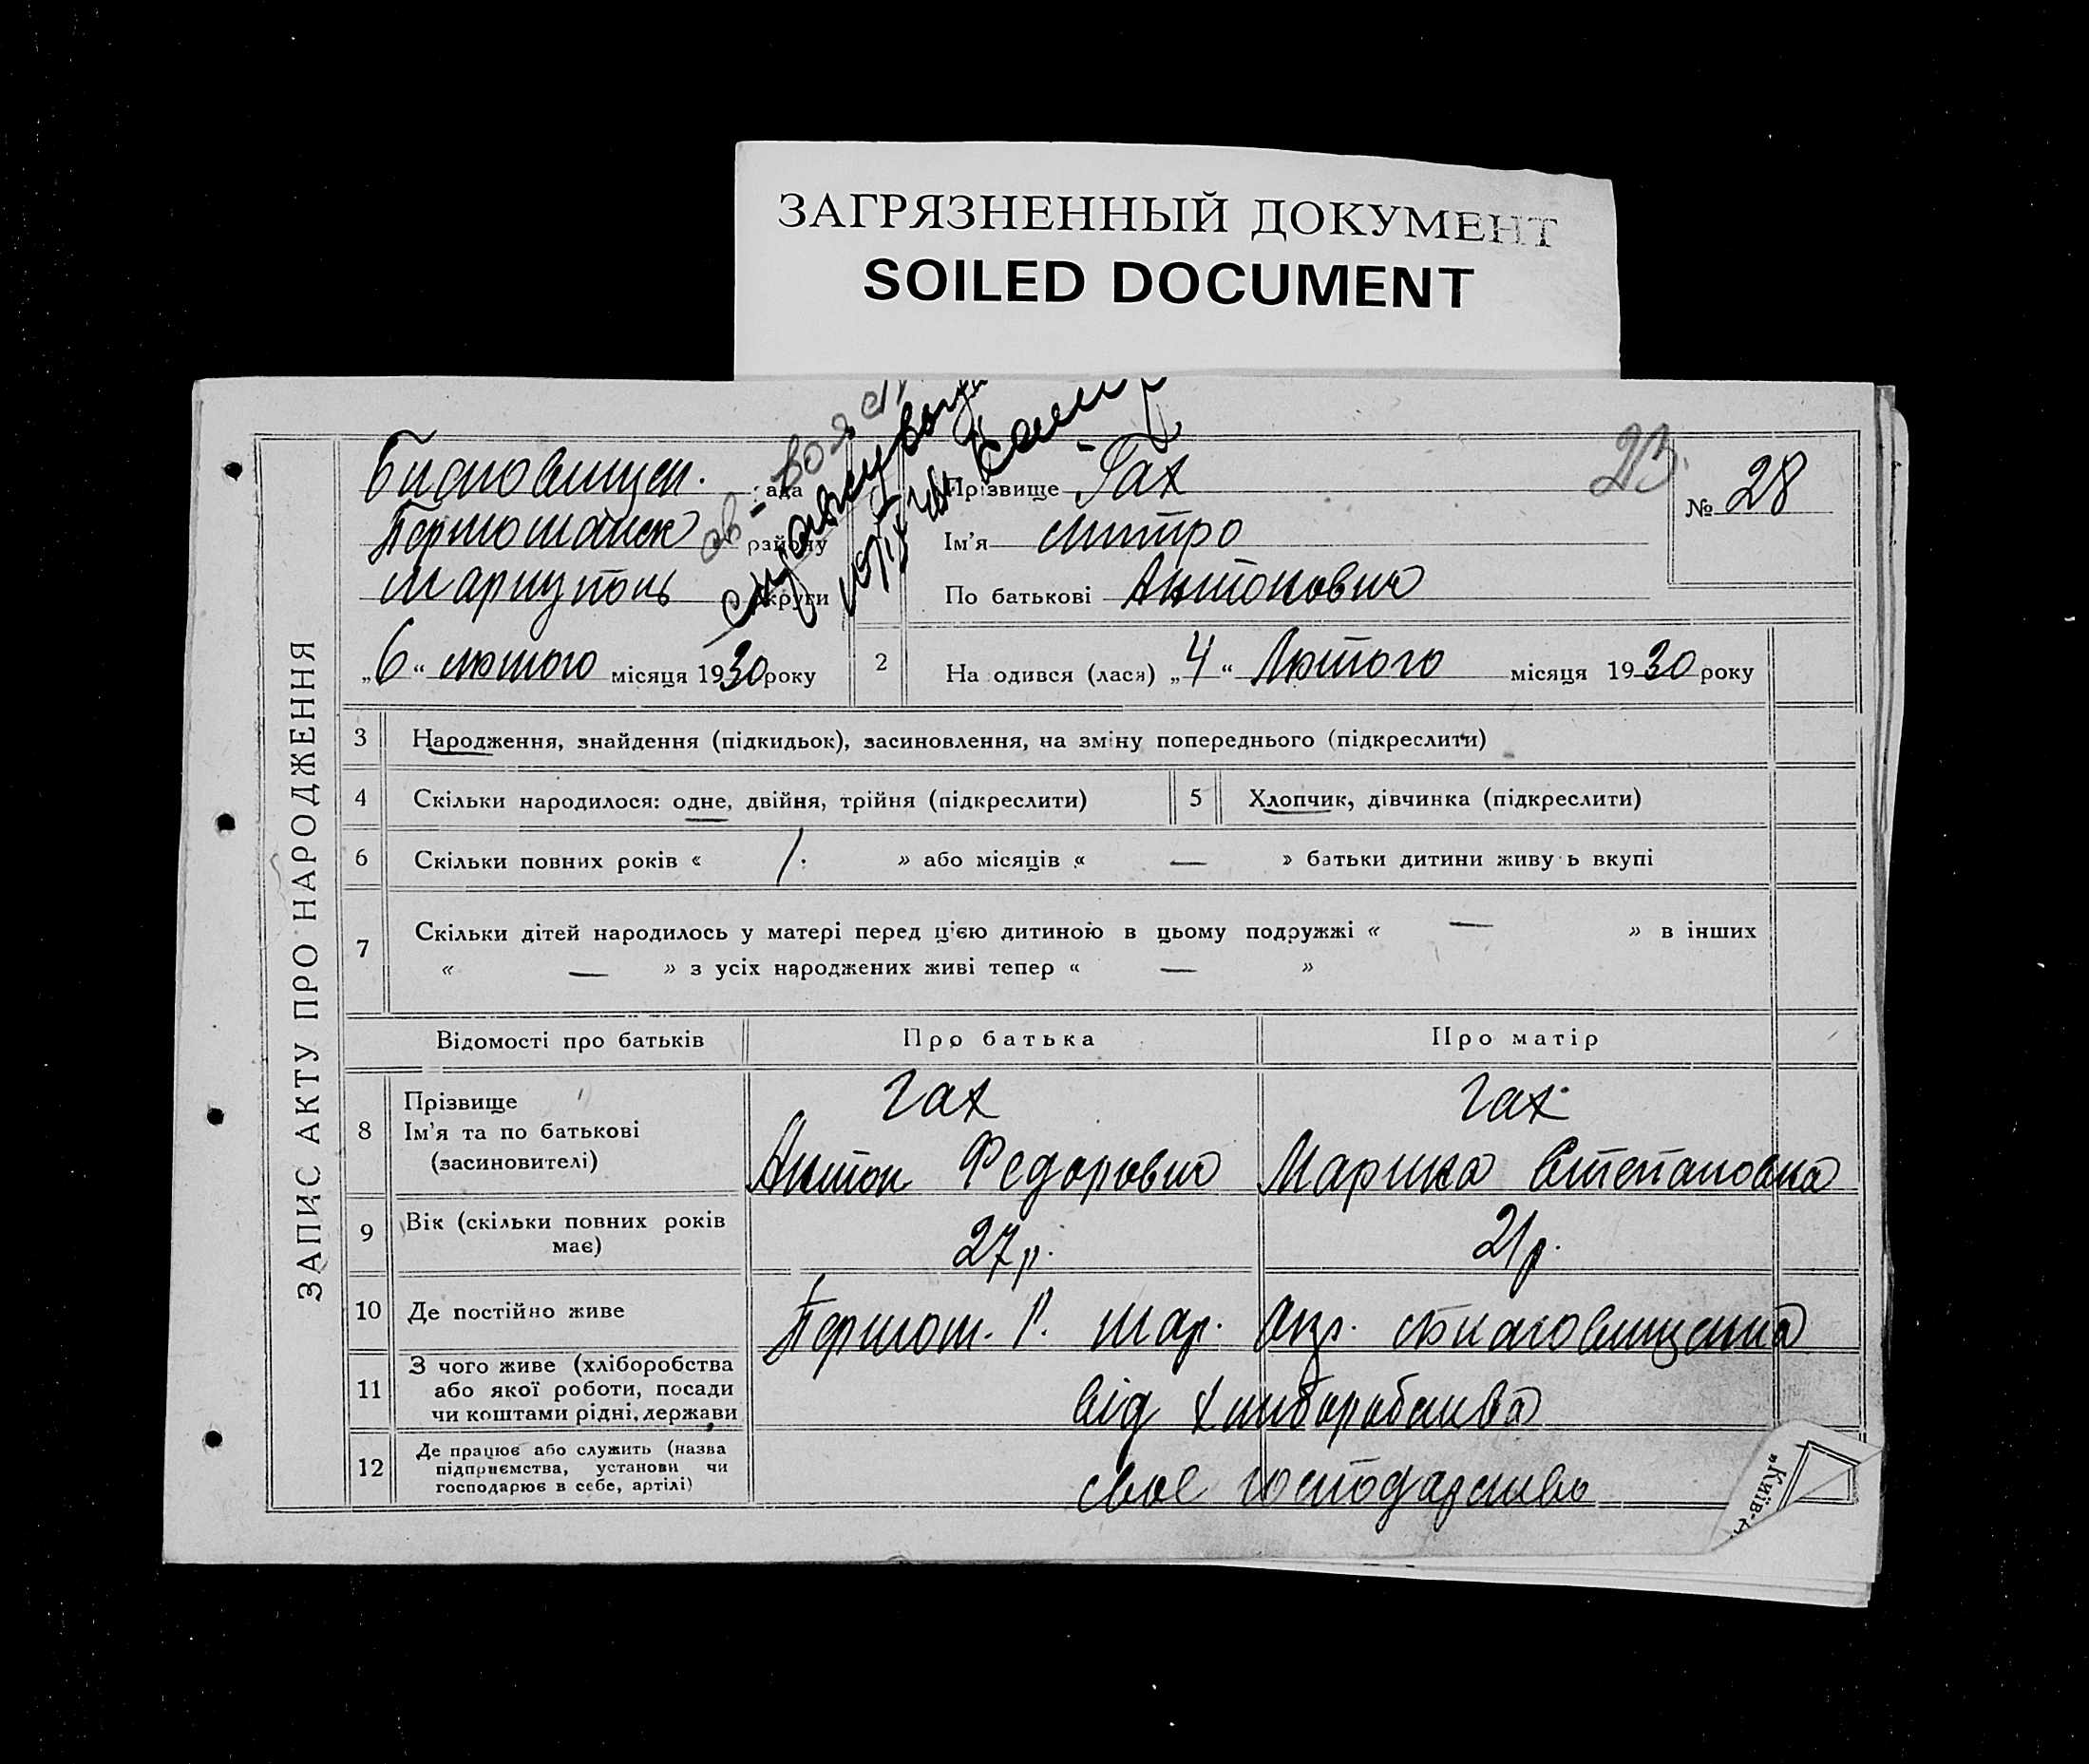 ЗАГРЯЗНЕННЫЙ ДОКУМЕНТ
SOILED DOCUMENT
ЗАПИС АКТУ ПРО НАРОДЖЕННЯ
рада
району
Маріуполь округи
„6“ лютого місяця 1930 року
23.
№ 28
Прізвище Гах
Ім'я Митро
По батькові Антонович
2 Народився (лася) „4“ Лютого місяця 1930 року
3 Народження, знайдення (підкидьок), засиновлення, на зміну попереднього (підкреслити)
4 Скільки народилося: одне, двійня, трійня (підкреслити) 5 Хлопчик, дівчинка (підкреслити)
6 Скільки повних років « 1. » або місяців « — » батьки дитини живуть вкупі
7 Скільки дітей народилось у матері перед цією дитиною в цьому подружжі « — » в інших
« — » з усіх народжених живі тепер « — »
Відомості про батьків Про батька Про матір
8 Прізвище Гах Гах
Ім'я та по батькові
(засиновителі) Антон Федорович Марина Степановна
9 Вік (скільки повних років
має) 27 р. 21 р.
10 Де постійно живе Першот. Р. Мар. Окр.
11 З чого живе (хліборобства
або якої роботи, посади
чи коштами рідні, держави
від хліборобства
12 Де працює або служить (назва
підприємства, установи чи
господарює в себе, артілі)
своє господарство
„Київ-